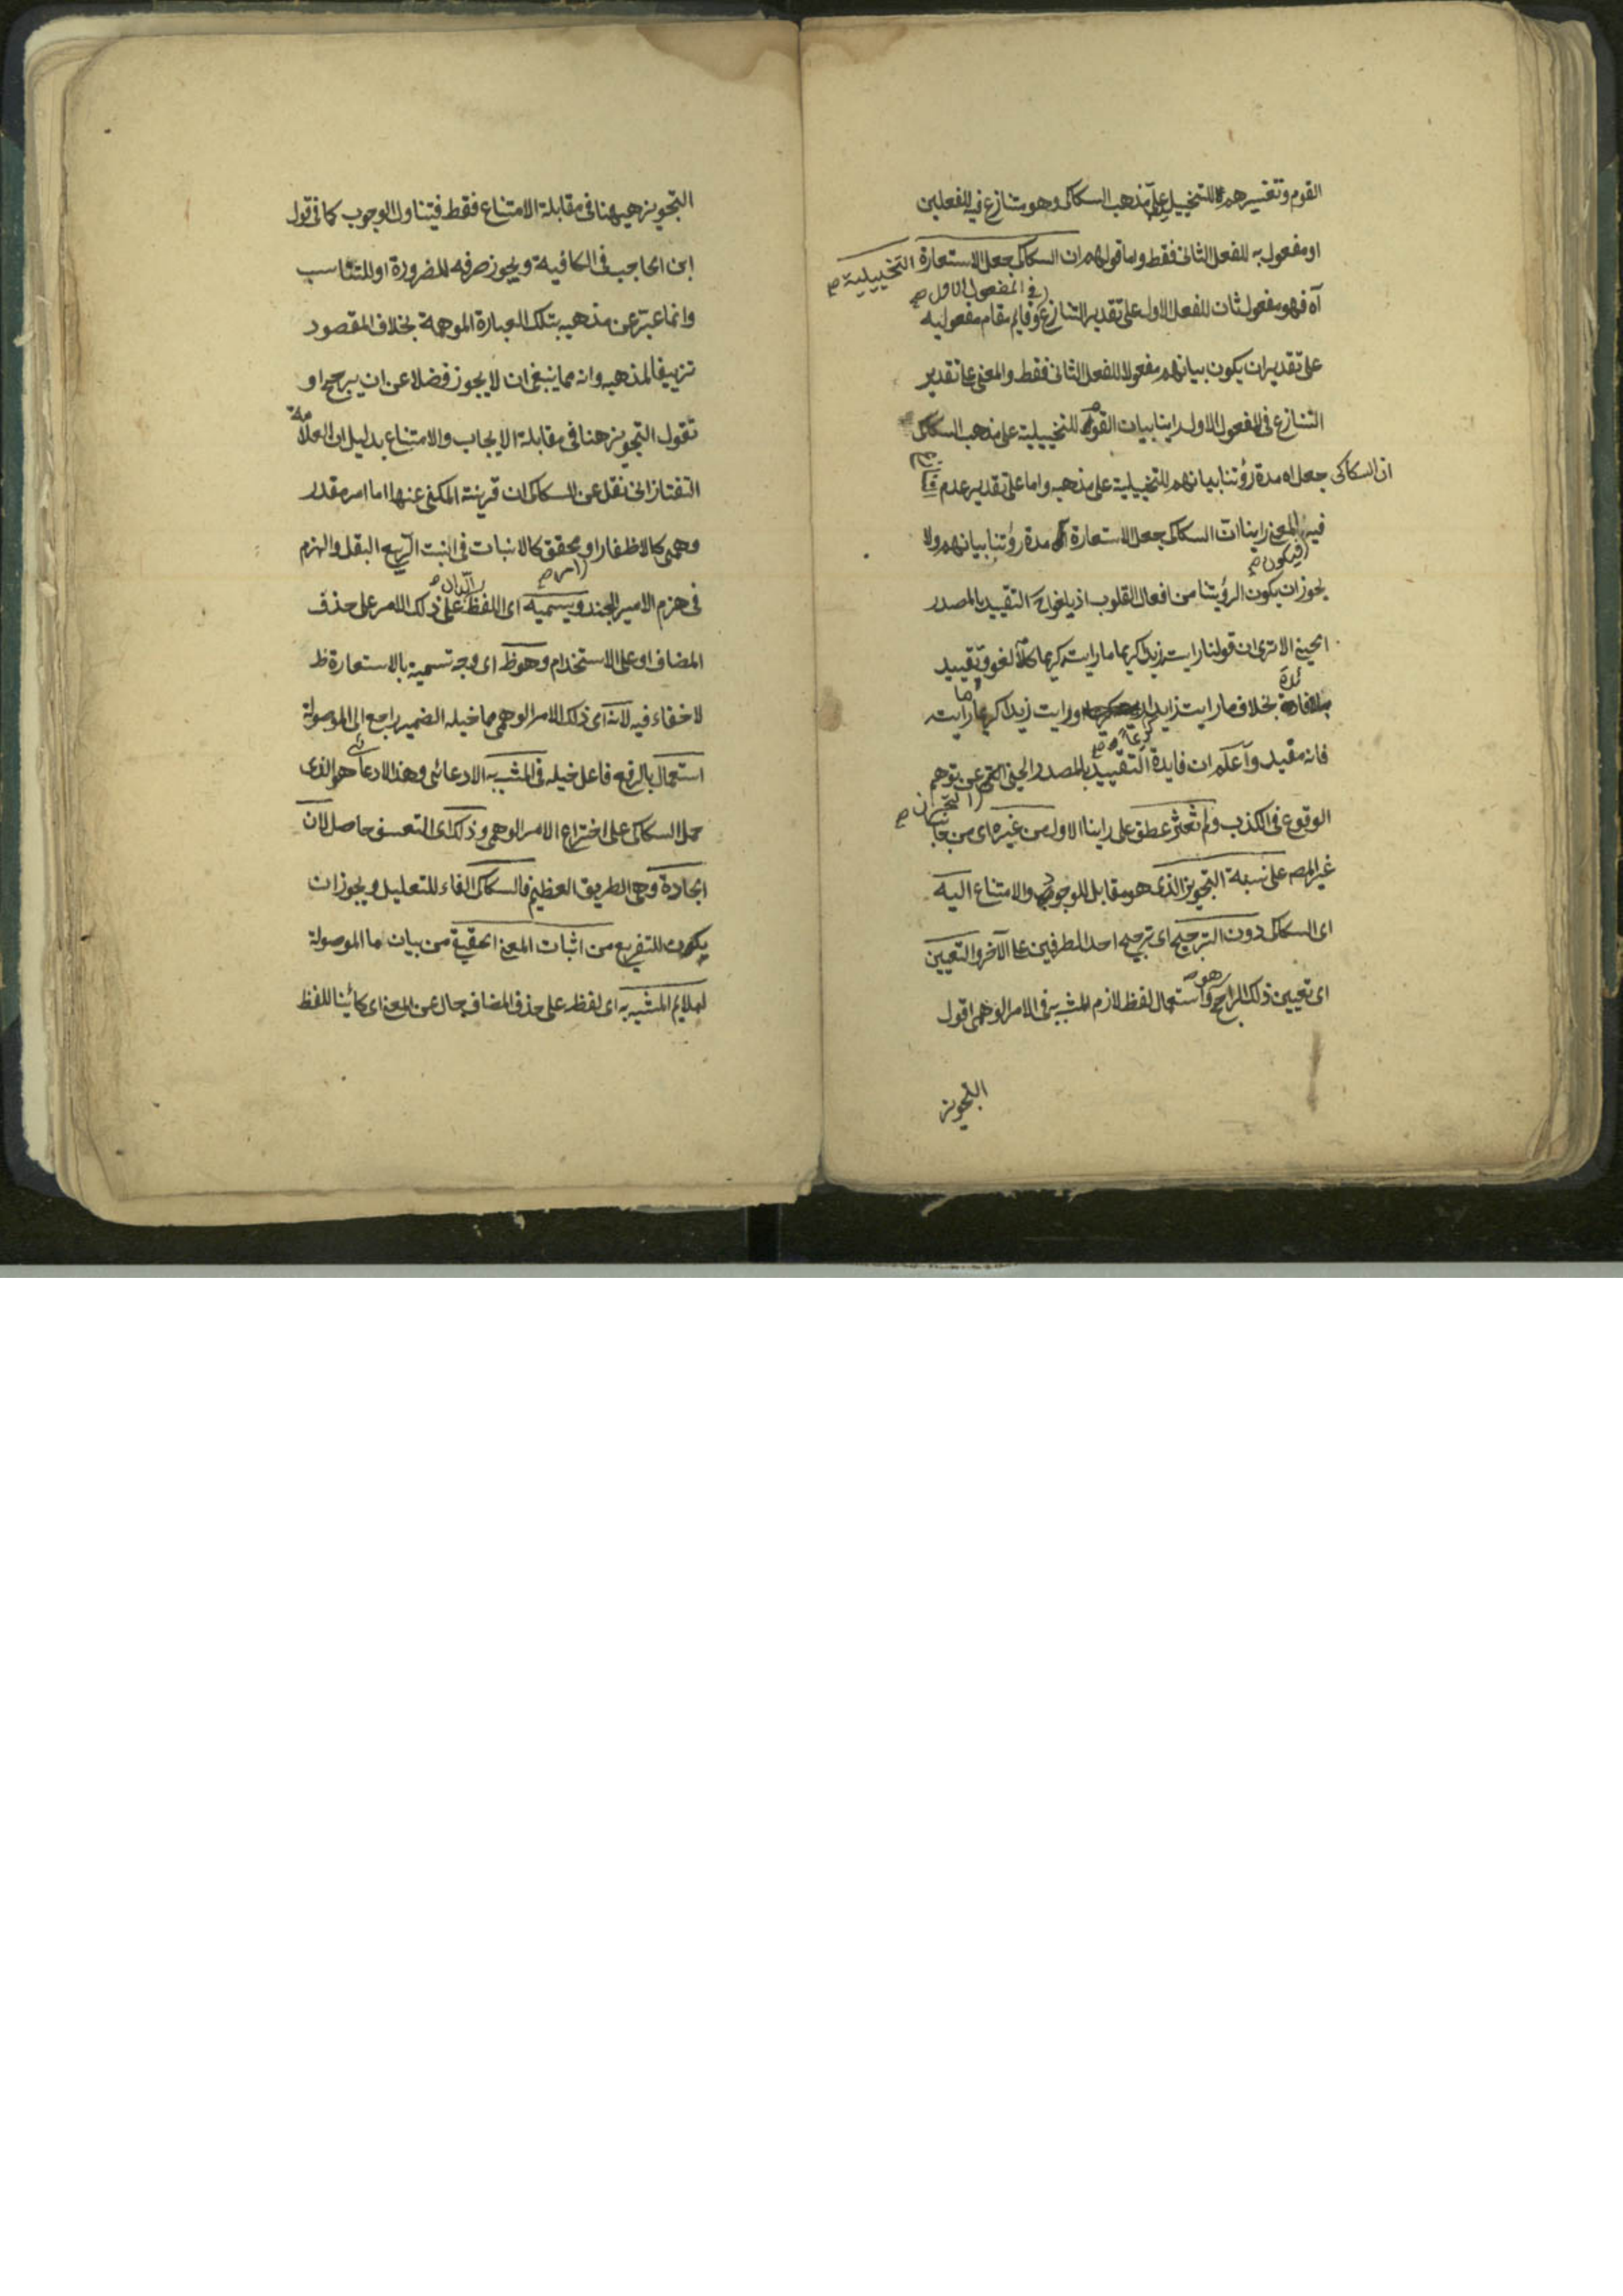 القوم وتفسيرهم للتخييل على مذهب السكاكى وهو متنازع فيه للفعلين
او مفعول به للفعل الثانى فقط واما قولهم ان السكاكى جعل الاستعارة التخييلية صح
فى المفعول الاول صح
آه فهو مفعول ثان للفعل الاول على تقدير التنازع وقايم مقام مفعوليه
على تقدير ان يكون بيانهم مفعولا للفعل الثانى فقط والمعنى على تقدير
التنازع فى المفعول الاول راينا بيان القوم للتخييلية على مذهب السكاكى
ان السكاكى جعل اه مدة رؤتنا بيانهم للتخييلية على مذهبه واما على تقدير عدم
فيه المعنى راينا ان السكاكى جعل الاستعارة آه مدة رؤتنا بيانهم ولا
فيكون صح
يجوز ان يكون الرؤيتنا من افعال القلوب اذ يلغو اح التقييد بالمصدر
الحينى الا ترى ان قولنا رايت زيدا كريما ما رايت كريما كلام لغو وتقييد
بلا فائدة بخلاف ما رايت زيدا ورايت زيدا كريما ما رايت
كريما صح
فانه مقيد وآعلم ان فايدة التقييد بالمصدر الحينى التحرز عن توهم
الوقوع فى الكذب ولم نعثر عطف على راينا الاول من غيره اى من جانب
غير المص على نسبة التجويز الذى هو مقابل للوجوب والامتناع اليه
اى السكاكى دون الترجيح اى ترجيح احد الطرفين على الآخر والتعيين
اى تعيين ذلك الراجح وهو استعمال لفظ لازم المشبه به فى الامر الوهمى اقول
التجويز
التجويز هيهنا فى مقابلة الامتناع فقط فيتناول الوجوب كما فى قول
ابن الحاجب فى الكافية ويجوز صرفه للضرورة او للتناسب
وانما عبر عن مذهبه بتلك العبارة الموهمة بخلاف المقصود
تزييفا لمذهبه وانه مما ينبغى ان لا يجوز فضلا عن ان يرجح او
تقول التجويز هنا فى مقابلة الايجاب والامتناع بدليل ان العلامة
التفتازانى نقل عن السكاكى ان قرينة المكنى عنها اما امر مقدر
وهمى كالاظفار او محقق كالانبات فى انبت الربيع البقل والهزم
امر صح
فى هزم الامير الجند ويسميه اى اللفظ الدال على ذلك الامر على حذف
المضاف او على الاستخدام وهو ظ اى وجه تسمية بالاستعارة ظ
لا خفاء فيه لانه اى ذلك الامر الوهمى ما خيله الضمير راجع الى الموصولة
استعمال بالرفع فاعل خيله فى المشبه الادعائى وهذا الادعائى هو الذى
حمل السكاكى على اختراع الامر الوهمى وذلك اى التعسف حاصل لان
الجادة وهى الطريق العظيم فالسكاكى الفاء للتعليل ويجوز ان
يكون للتفريع من اثبات المعنى الحقيقى من بيان ما الموصولة
لملايم المشبه به اى لفظه على حذف المضاف حال عن المعنى اى كائينا للفظ